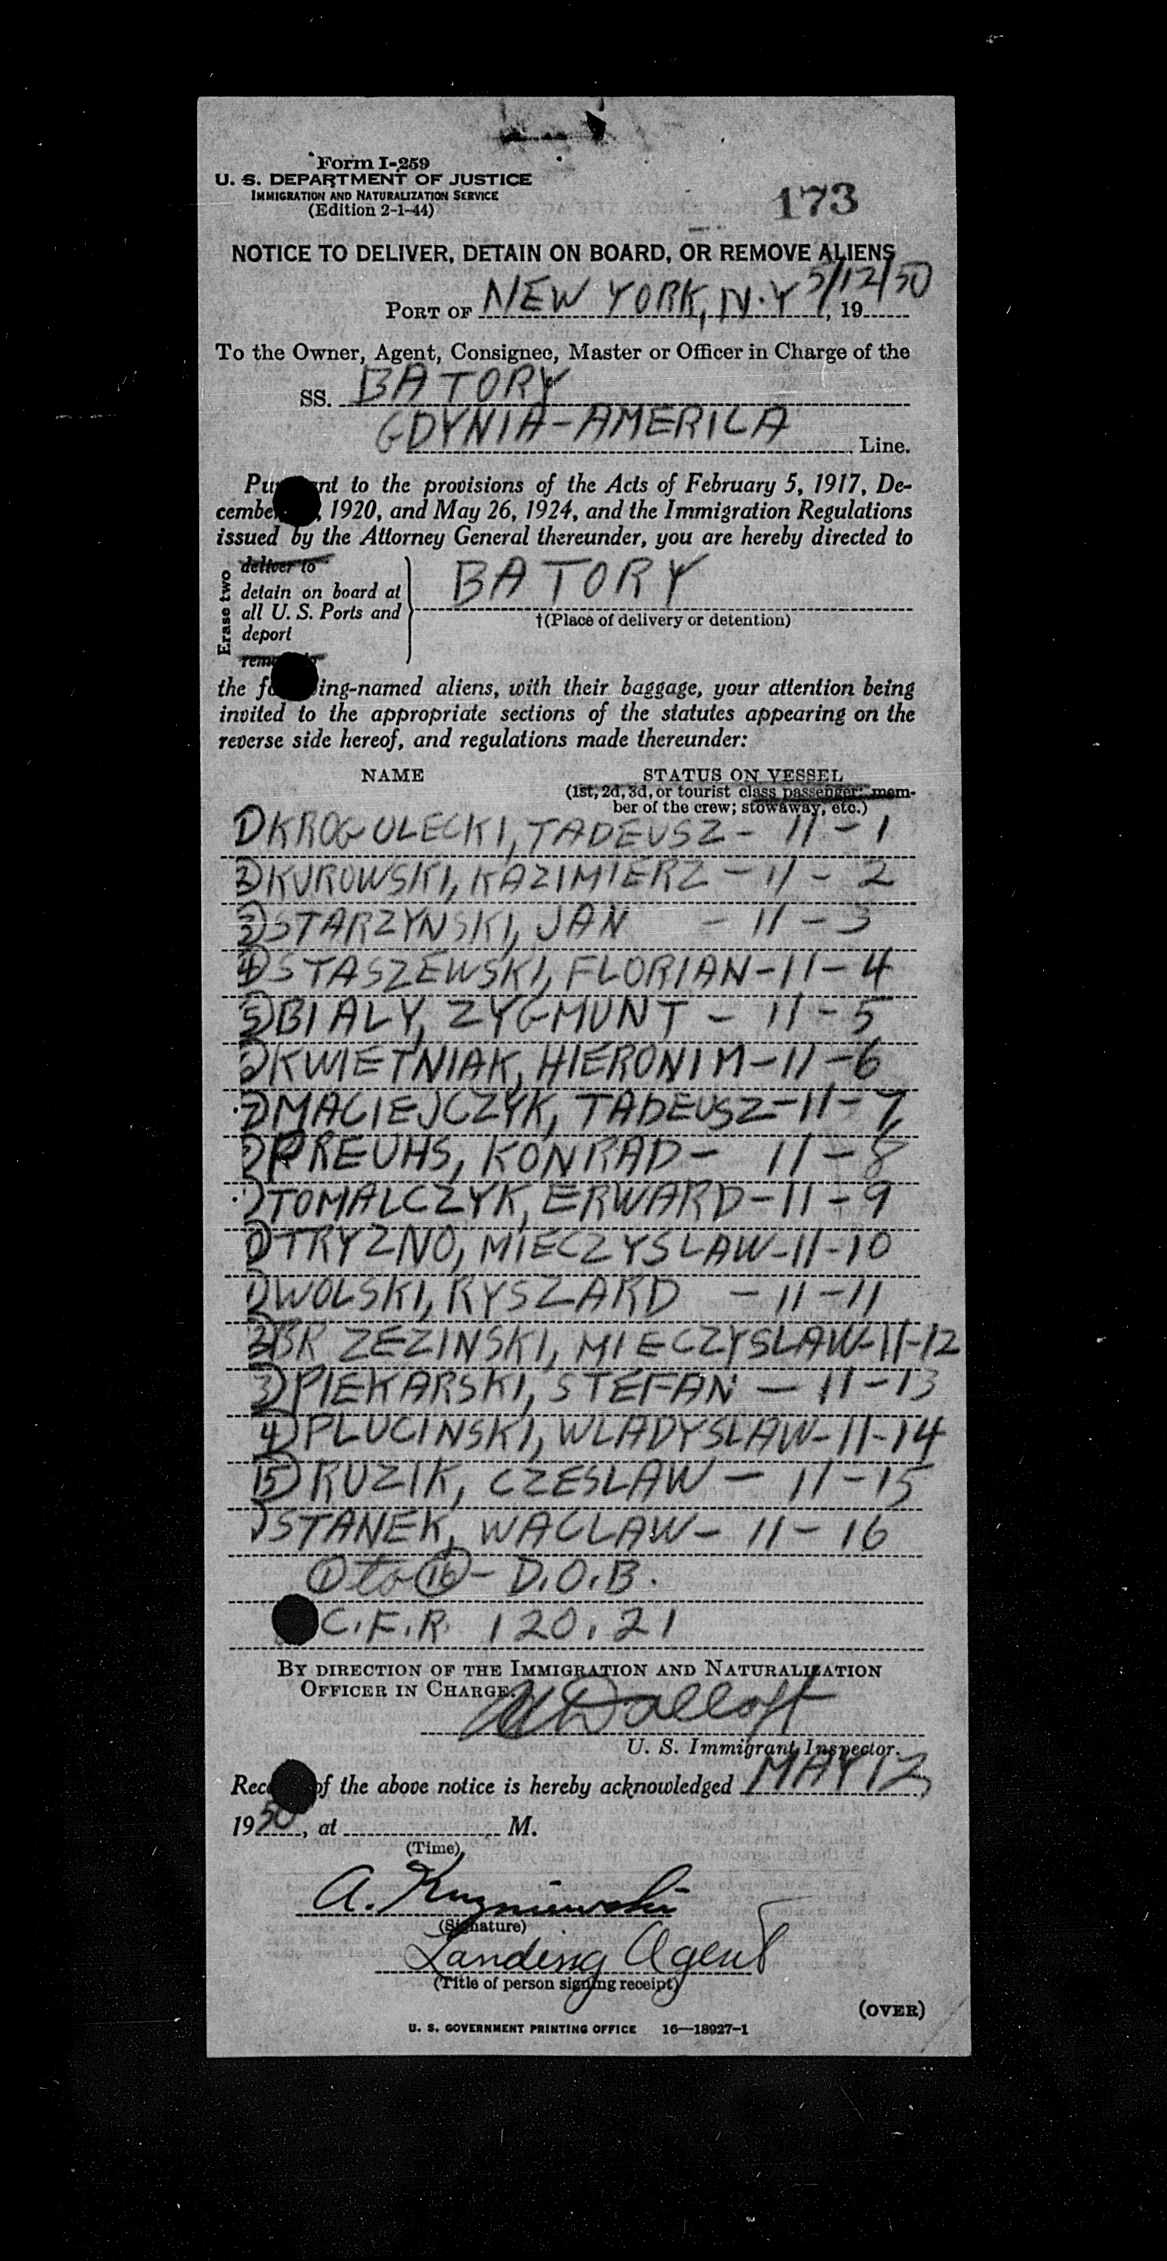 Form I-259
U. S. DEPARTMENT OF JUSTICE
IMMIGRATION AND NATURALIZATION SERVICE
(Edition 2-1-44)
173
NOTICE TO DELIVER, DETAIN ON BOARD, OR REMOVE ALIENS
PORT OF NEW YORK, N.Y 5/12/50, 19
To the Owner, Agent, Consignee, Master or Officer in Charge of the
SS. BATORY
GDYNIA-AMERICA Line.
nt to the provisions of the Acts of February 5, 1917, De-
cembe , 1920, and May 26, 1924, and the Immigration Regulations
issued by the Attorney General thereunder, you are hereby directed to
Erase two
deliver to
detain on board at
all U. S. Ports and
deport
BATORY
†(Place of delivery or detention)
the f ing-named aliens, with their baggage, your attention being
invited to the appropriate sections of the statutes appearing on the
reverse side hereof, and regulations made thereunder:
NAME STATUS ON VESSEL
(1st, 2d, 3d, or tourist class passenger; mem-
ber of the crew; stowaway, etc.)
1) KROGULECKI, TADEUSZ - 11 - 1
2) KUROWSKI, KAZIMIERZ - 11 - 2
3) STARZYNSKI, JAN - 11 - 3
4) STASZEWSKI, FLORIAN - 11 - 4
5) BIALY, ZYGMUNT - 11 - 5
) KWIETNIAK, HIERONIM - 11 - 6
7) MACIEJCZYK, TADEUSZ - 11 - 7
) PREUHS, KONRAD - 11 - 8
) TOMALCZYK, ERWARD - 11 - 9
0) TRYZNO, MIECZYSLAW - 11 - 10
1) WOLSKI, RYSZARD - 11 - 11
2) BRZEZINSKI, MIECZYSLAW - 11 - 12
3) PIEKARSKI, STEFAN - 11 - 13
4) PLUCINSKI, WLADYSLAW - 11 - 14
15) RUZIK, CZESLAW - 11 - 15
) STANEK, WACLAW - 11 - 16
① to ⑯ - D.O.B.
C.F.R. 120.21
BY DIRECTION OF THE IMMIGRATION AND NATURALIZATION
OFFICER IN CHARGE.
U. S. Immigrant Inspector.
Rec of the above notice is hereby acknowledged MAY 12,
1950, at M.
(Time)
A. Kuzniewski
(Signature)
Landing Agent
(Title of person signing receipt)
(OVER)
U. S. GOVERNMENT PRINTING OFFICE 16—18927-1